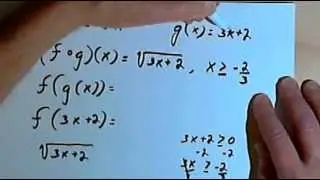 g(x) = 3x+2
(f ∘ g)(x) = √3x+2 , x ≥ -2/3
f(g(x)) =
f(3x+2) =
√3x+2
3x+2 ≥ 0
-2 -2
3x ≥ -2
3 3